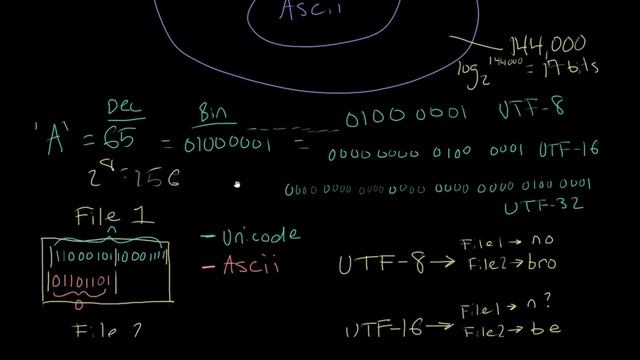 Ascii
144,000
log₂ 144000 = 17 bits
Dec
Bin
'A' = 65 = 01000001 =
0100 0001 UTF-8
0000 0000 0100 0001 UTF-16
0000 0000 0000 0000 0000 0000 0100 0001
UTF-32
2⁸ = 256
File 1
n
01101101
o
- Unicode
- Ascii
UTF-8 → File1 → no
File2 → bro
UTF-16 → File1 → n?
File2 → be
File 2